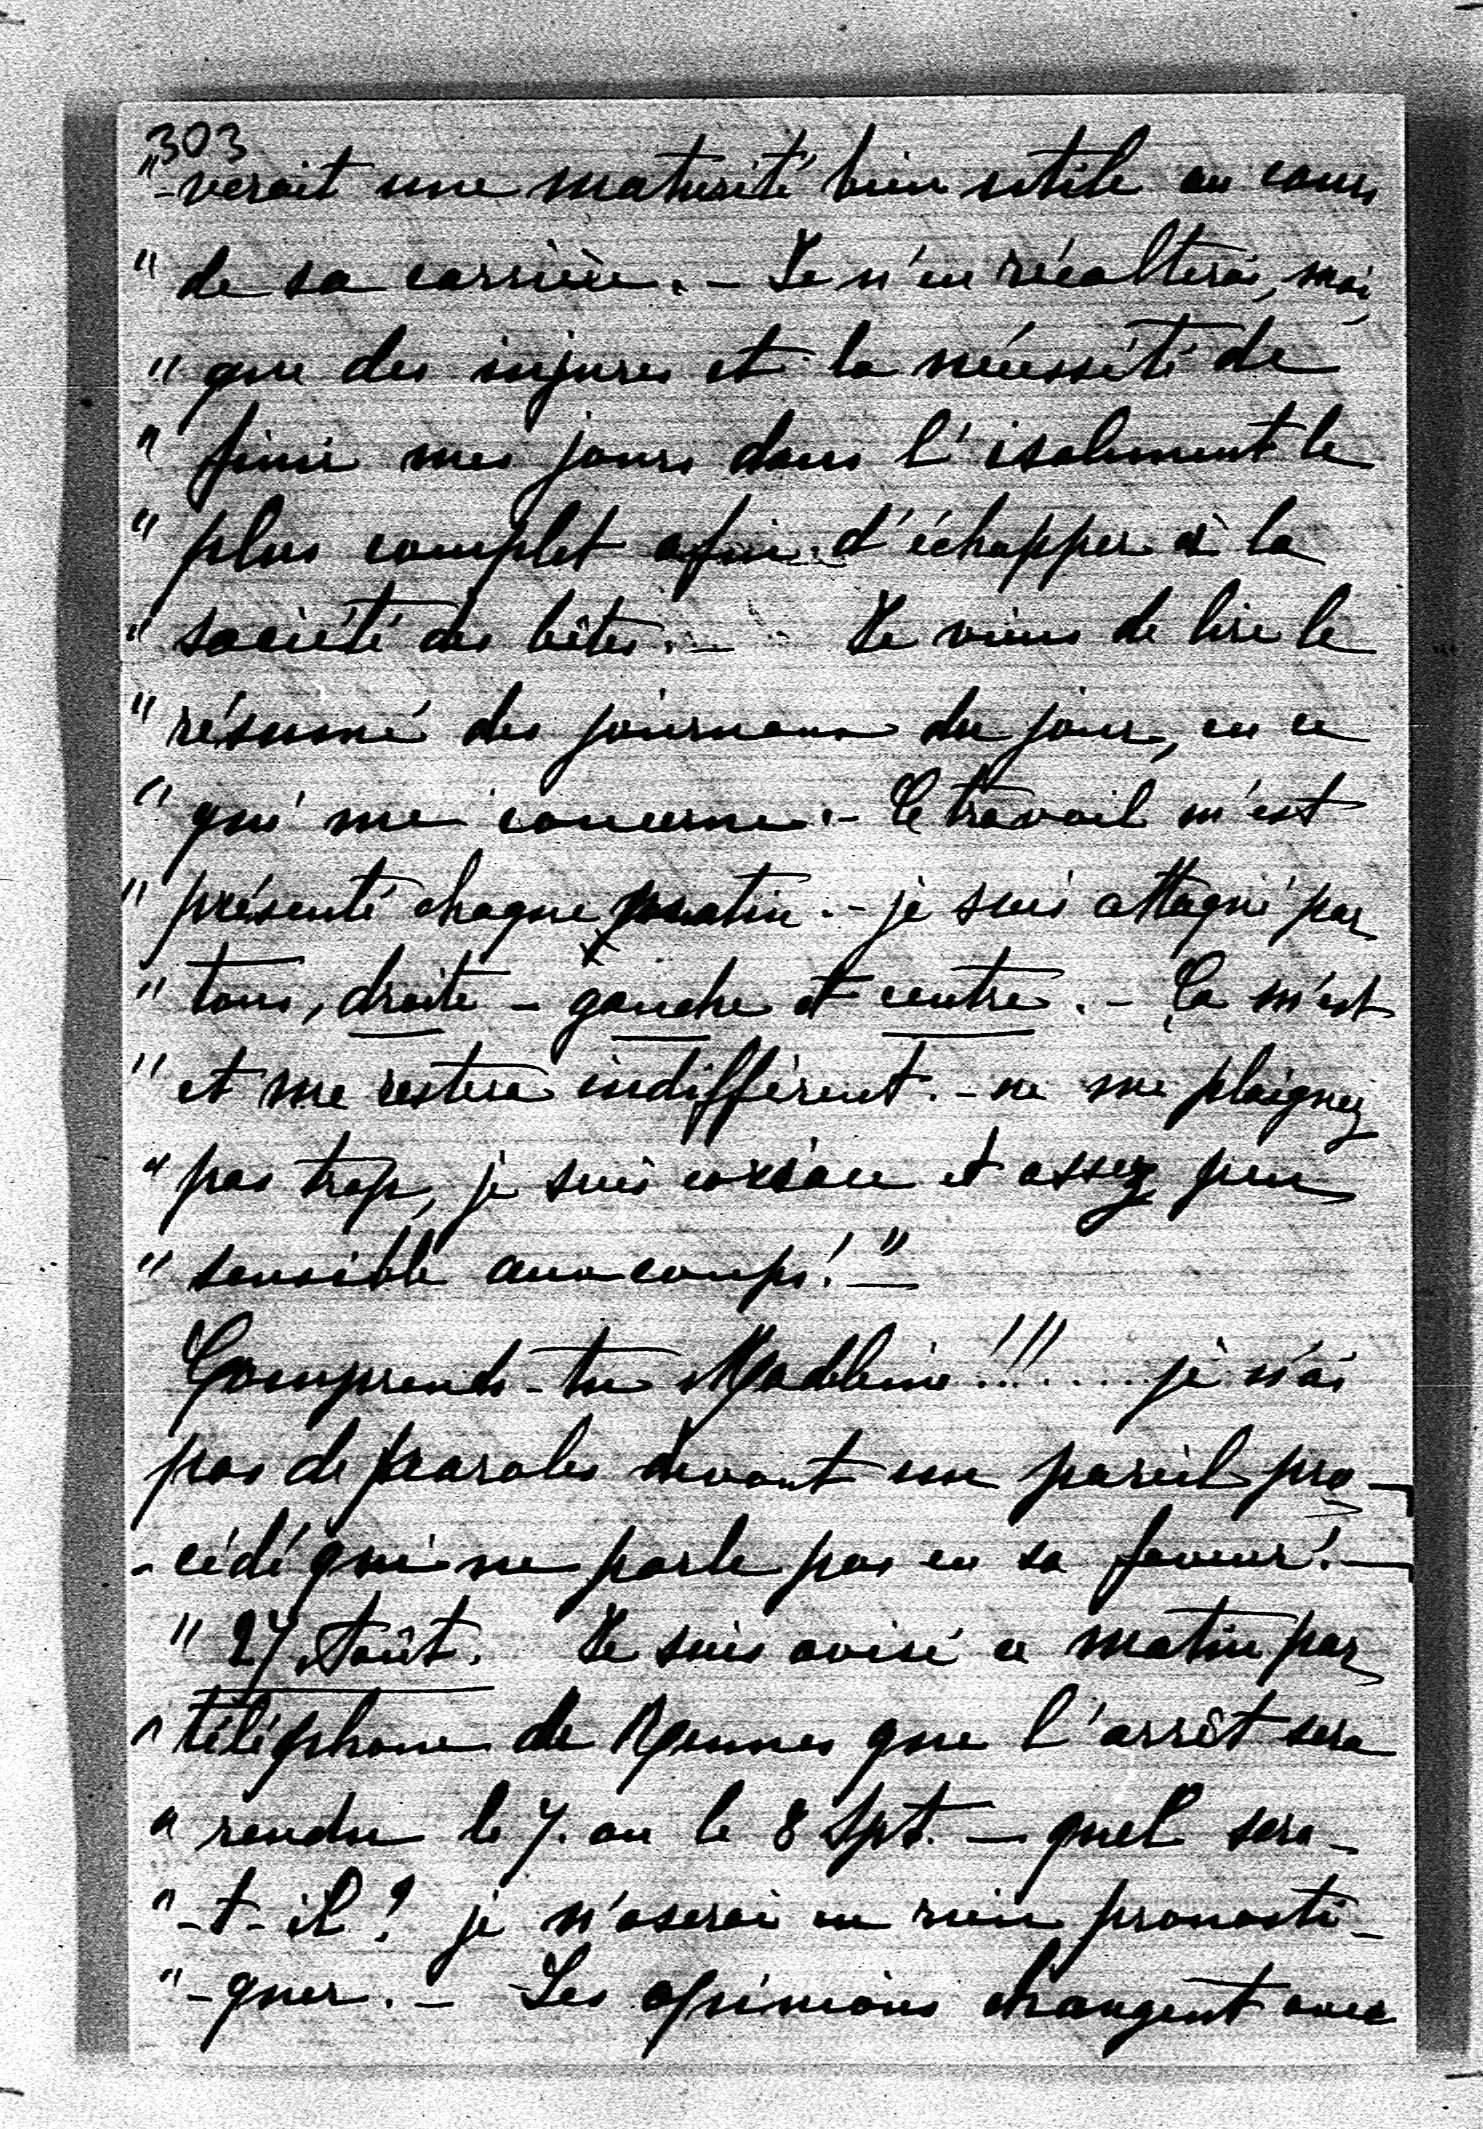 303
"-verait une maturité bien utile au cours
" de sa carrière. - Je n'en récolterai, moi,
" que des injures et la nécessité de
" finir mes jours dans l'isolement le
" plus complet afin d'échapper à la
" société des bêtes. - Je viens de lire le
" résumé des journaux du jour, en ce
" qui me concerne. - Ce travail m'est
" présenté chaque matin. - je suis attaqué par
" tous, droite - gauche et centre. - Ça m'est
" et me restera indifférent. - ne me plaignez
" pas trop, je suis coriace et assez peu
" sensible aux coups! " -
Comprends-tu Madeleine!!!.... je n'ai
pas de paroles devant un pareil pro-
- cédé qui ne parle pas en sa faveur! -
" 27 Août. Je suis avisé ce matin par
" téléphone de Rennes que l'arrêt sera
" rendu le 7. ou le 8 Spt. - quel sera-
" -t-il? je n'oserai en rien pronosti-
" -quer. - Les opinions changent avec